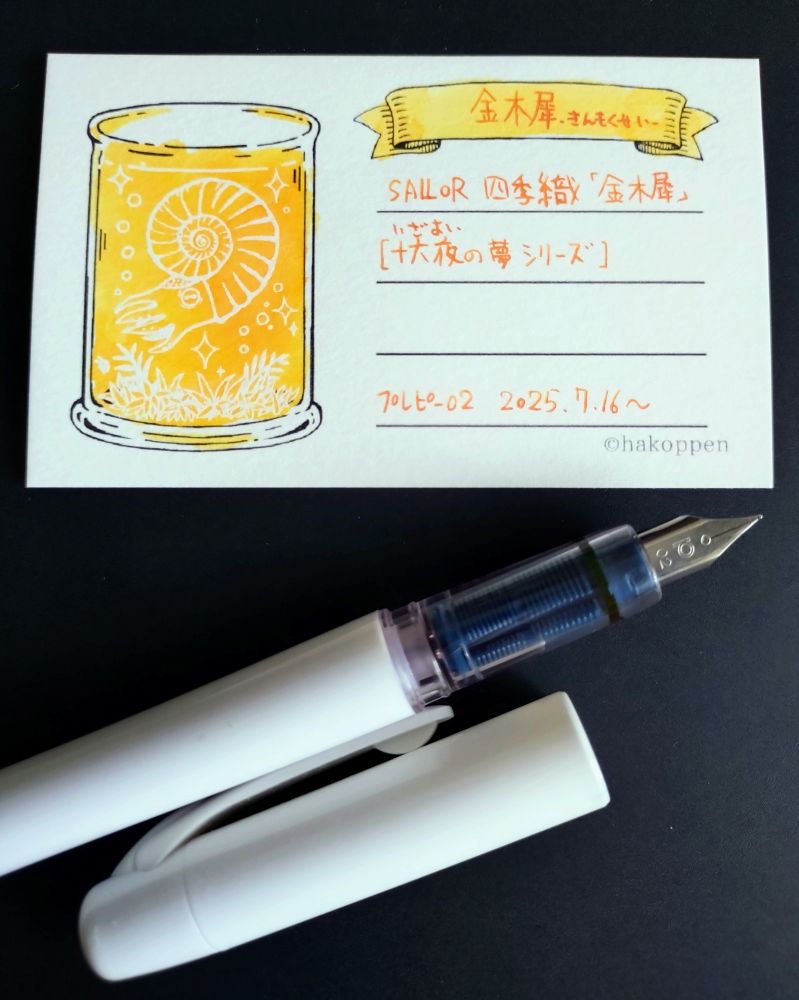 金木犀-きんもくせい-
SAILOR 四季織「金木犀」
いざよい
[十六夜の夢シリーズ]
プレピー02 2025.7.16〜
©hakoppen
02